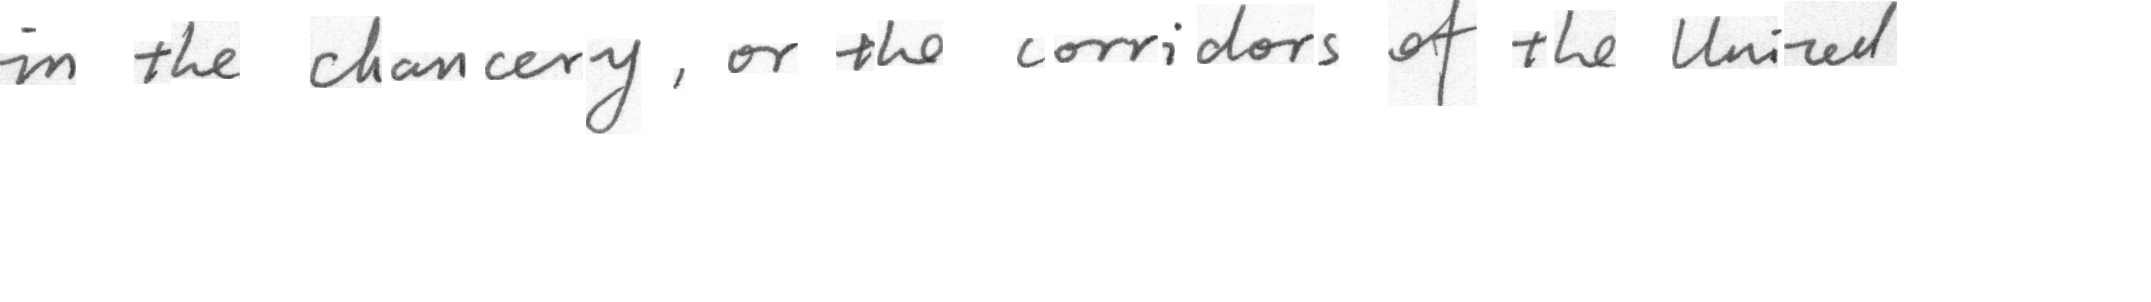 in the chancery, or the corridors of the United